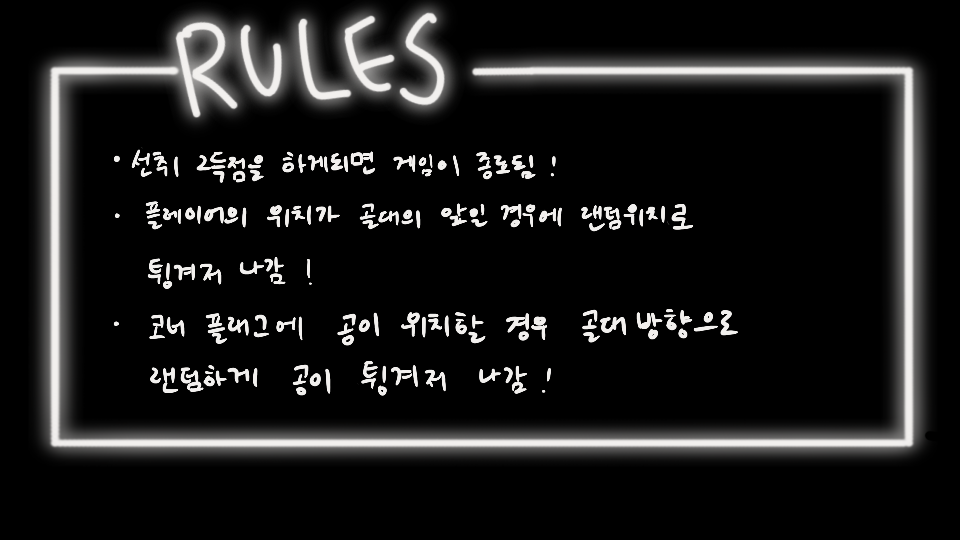 RULES
• 선취 2득점을 하게되면 게임이 종료됨 !
• 플레이어의 위치가 골대의 앞일 경우에 랜덤위치로
튕겨저 나감 !
• 코너 플래그에 공이 위치할 경우 골대 방향으로
랜덤하게 공이 튕겨저 나감 !